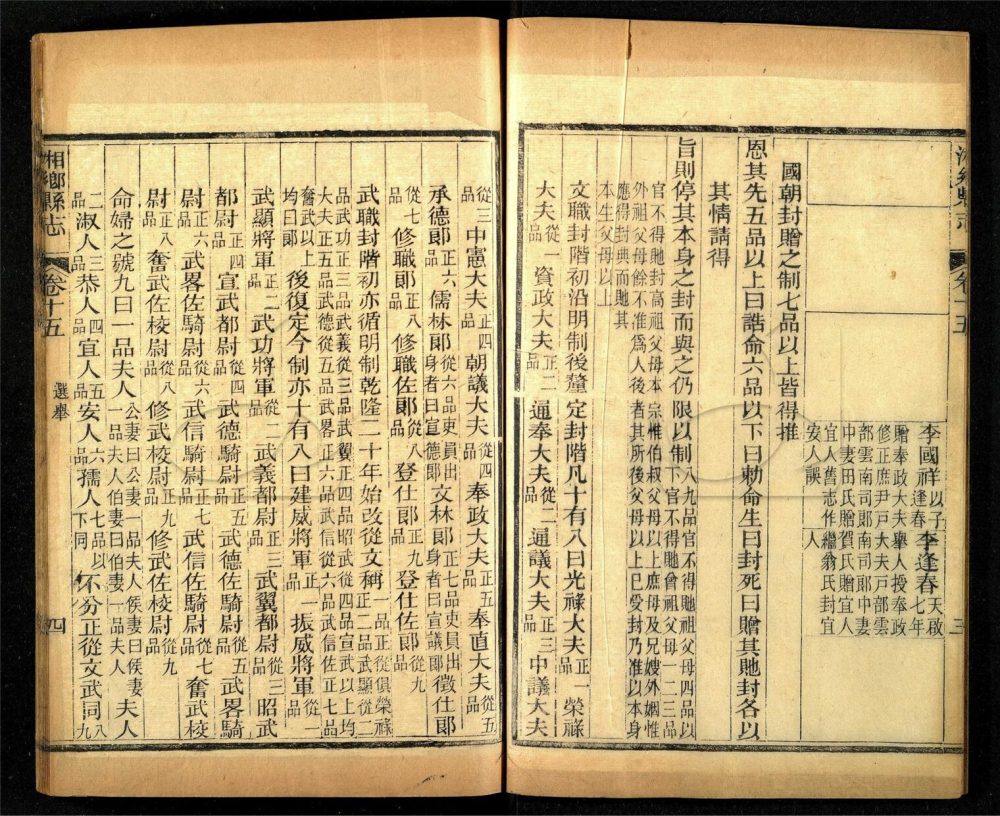 湘鄉縣志
卷十五
三
李國祥以子李逢春天啟
逢春七年
贈奉政大夫舉人授奉政
修正庶尹戶大夫戶部雲
部雲南司郎南司郎中妻
中妻田氏贈賀氏贈宜人
宜人舊志作繼翁氏封宜
安人誤人
國朝封贈之制七品以上皆得推
恩其先五品以上曰誥命六品以下曰勅命生曰封死曰贈其貤封各以
其情請得
旨則停其本身之封而與之仍限以制八九品官不得貤祖父母四品以
下官不得貤曾祖父母一二三品
官不得貤封高祖父母本宗惟伯叔父母以上庶母及兄嫂外姻惟
外祖父母餘不准爲人後者其所後父母以上已受封乃准以本身
應得封典而貤其
本生父母以上
文職封階初沿明制後釐定封階凡十有八曰光祿大夫正一品榮祿
大夫從一品資政大夫正二品通奉大夫從二品通議大夫正三品中議大夫
從三品中憲大夫正四品朝議大夫從四品奉政大夫正五品奉直大夫從五品
承德郎正六品儒林郎從六品吏員出身者曰宣德郎文林郎正七品吏員出身者曰宣議郎徵仕郎
從七品修職郎正八品修職佐郎從八品登仕郎正九品登仕佐郎從九品
武職封階初亦循明制乾隆二十年始改從文稱一品正從俱榮祿大夫正二品武顯從二
品武功正三品武義從三品武翼正四品昭武從四品宣武以上均
大夫正五品武德從五品武畧正六品武信從六品武信佐正七品
奮武以上均曰郎後復定今制亦十有八曰建威將軍正一品振威將軍從一品
武顯將軍正二品武功將軍從二品武義都尉正三品武翼都尉從三品昭武
都尉正四品宣武都尉從四品武德騎尉正五品武德佐騎尉從五品武畧騎
尉正六品武畧佐騎尉從六品武信騎尉正七品武信佐騎尉從七品奮武校
尉正八品奮武佐校尉從八品修武校尉正九品修武佐校尉從九品
命婦之號九曰一品夫人公妻曰公妻一品夫人侯妻曰侯妻一品夫人伯妻曰伯妻一品夫人夫人
二品淑人三品恭人四品宜人五品安人六品孺人七品以下同不分正從文武同八九
湘鄉縣志
卷十五
選舉
四